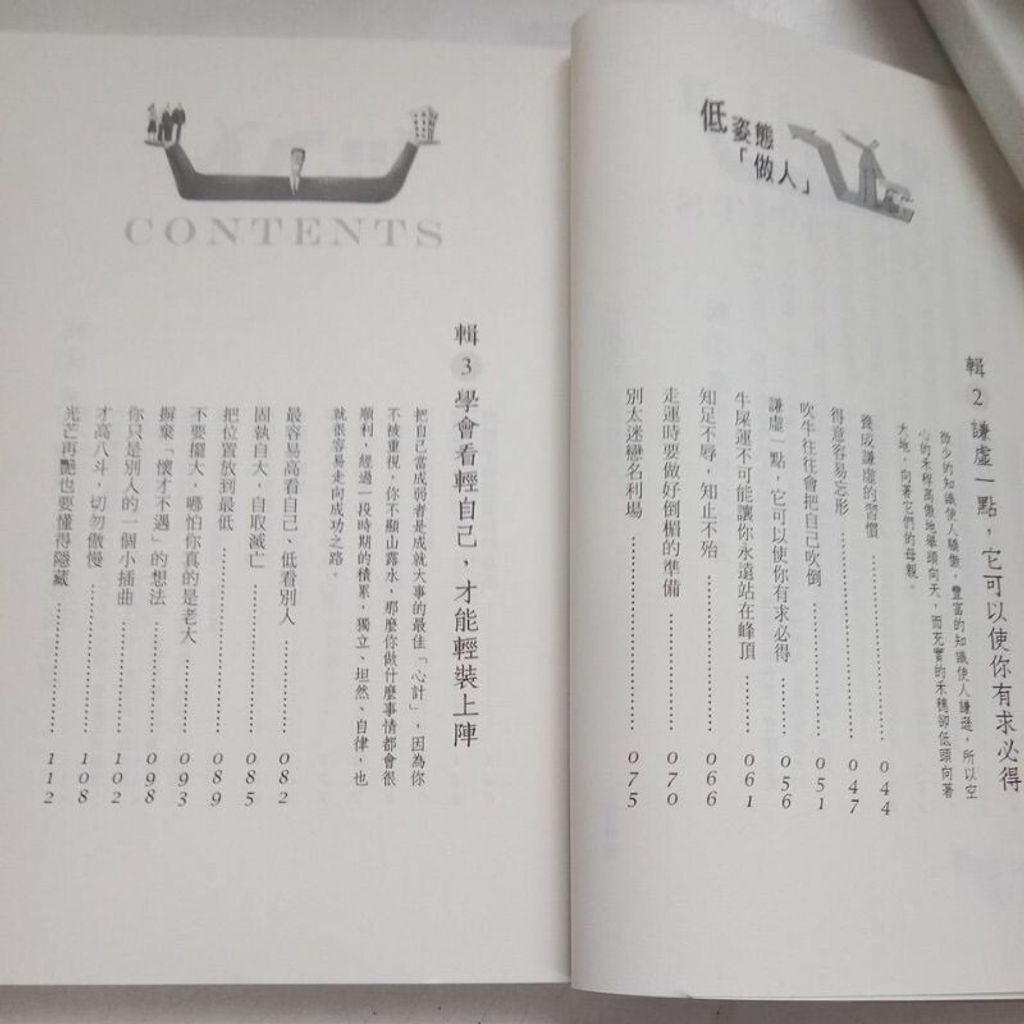 低姿態
「做人」
輯2 謙虛一點，它可以使你有求必得
微少的知識使人驕傲，豐富的知識使人謙遜，所以空
心的禾稈高傲地舉頭向天，而充實的禾穗卻低頭向著
大地，向著它們的母親。
養成謙虛的習慣 ………… 044
得意容易忘形 ………… 047
吹牛往往會把自己吹倒 ………… 051
謙虛一點，它可以使你有求必得 ………… 056
牛屎運不可能讓你永遠站在峰頂 ………… 061
知足不辱，知止不殆 ………… 066
走運時要做好倒楣的準備 ………… 070
別太迷戀名利場 ………… 075
CONTENTS
輯3 學會看輕自己，才能輕裝上陣
把自己當成弱者是成就大事的最佳「心計」，因為你
不被重視，你不顯山露水，那麼你做什麼事情都會很
順利，經過一段時期的積累，獨立、坦然、自律，也
就很容易走向成功之路。
最容易高看自己、低看別人 ………… 082
固執自大，自取滅亡 ………… 085
把位置放到最低 ………… 089
不要擺大，哪怕你真的是老大 ………… 093
摒棄「懷才不遇」的想法 ………… 098
你只是別人的一個小插曲 ………… 102
才高八斗，切勿傲慢 ………… 108
光芒再艷也要懂得隱藏 ………… 112